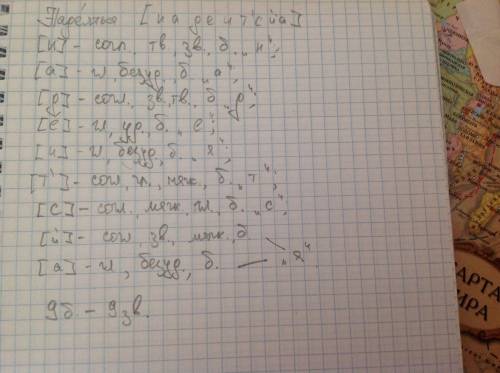 [н а д е и т' с й а]
[н] - согл, тв, зв, б. „н";
[а] - гл, безуд, б. „а";
[д] - согл, зв, тв, б. „д";
[е] - гл, уд, б. „е";
[и] - гл, безуд, б. „я";
[т'] - согл, гл, мяг, б. „т";
[с] - согл, мяг, гл, б. „с";
[й] - согл, зв, мяг, б
[а] - гл, безуд, б. „я"
9 б - 9 зв.
КАРТА
ИРА